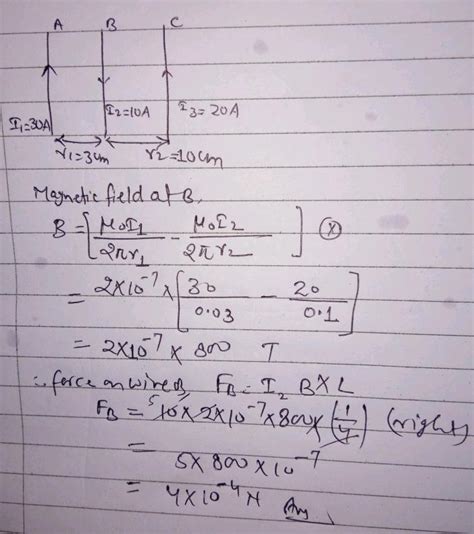 A B C
I₁=30A I₂=10A I₃=20A
r₁=3cm r₂=10cm
Magnetic field at B,
B = [μ₀I₁/2πr₁ - μ₀I₂/2πr₂] ⊗
= 2×10⁻⁷ × [30/0.03 - 20/0.1]
= 2×10⁻⁷ × 800 T
∴ force on wire B, F_B = I₂ B×L
F_B = 10×2×10⁻⁷×800×(1/4) (right)
5
= 5×800×10⁻⁷
= 4×10⁻⁴ N Ans